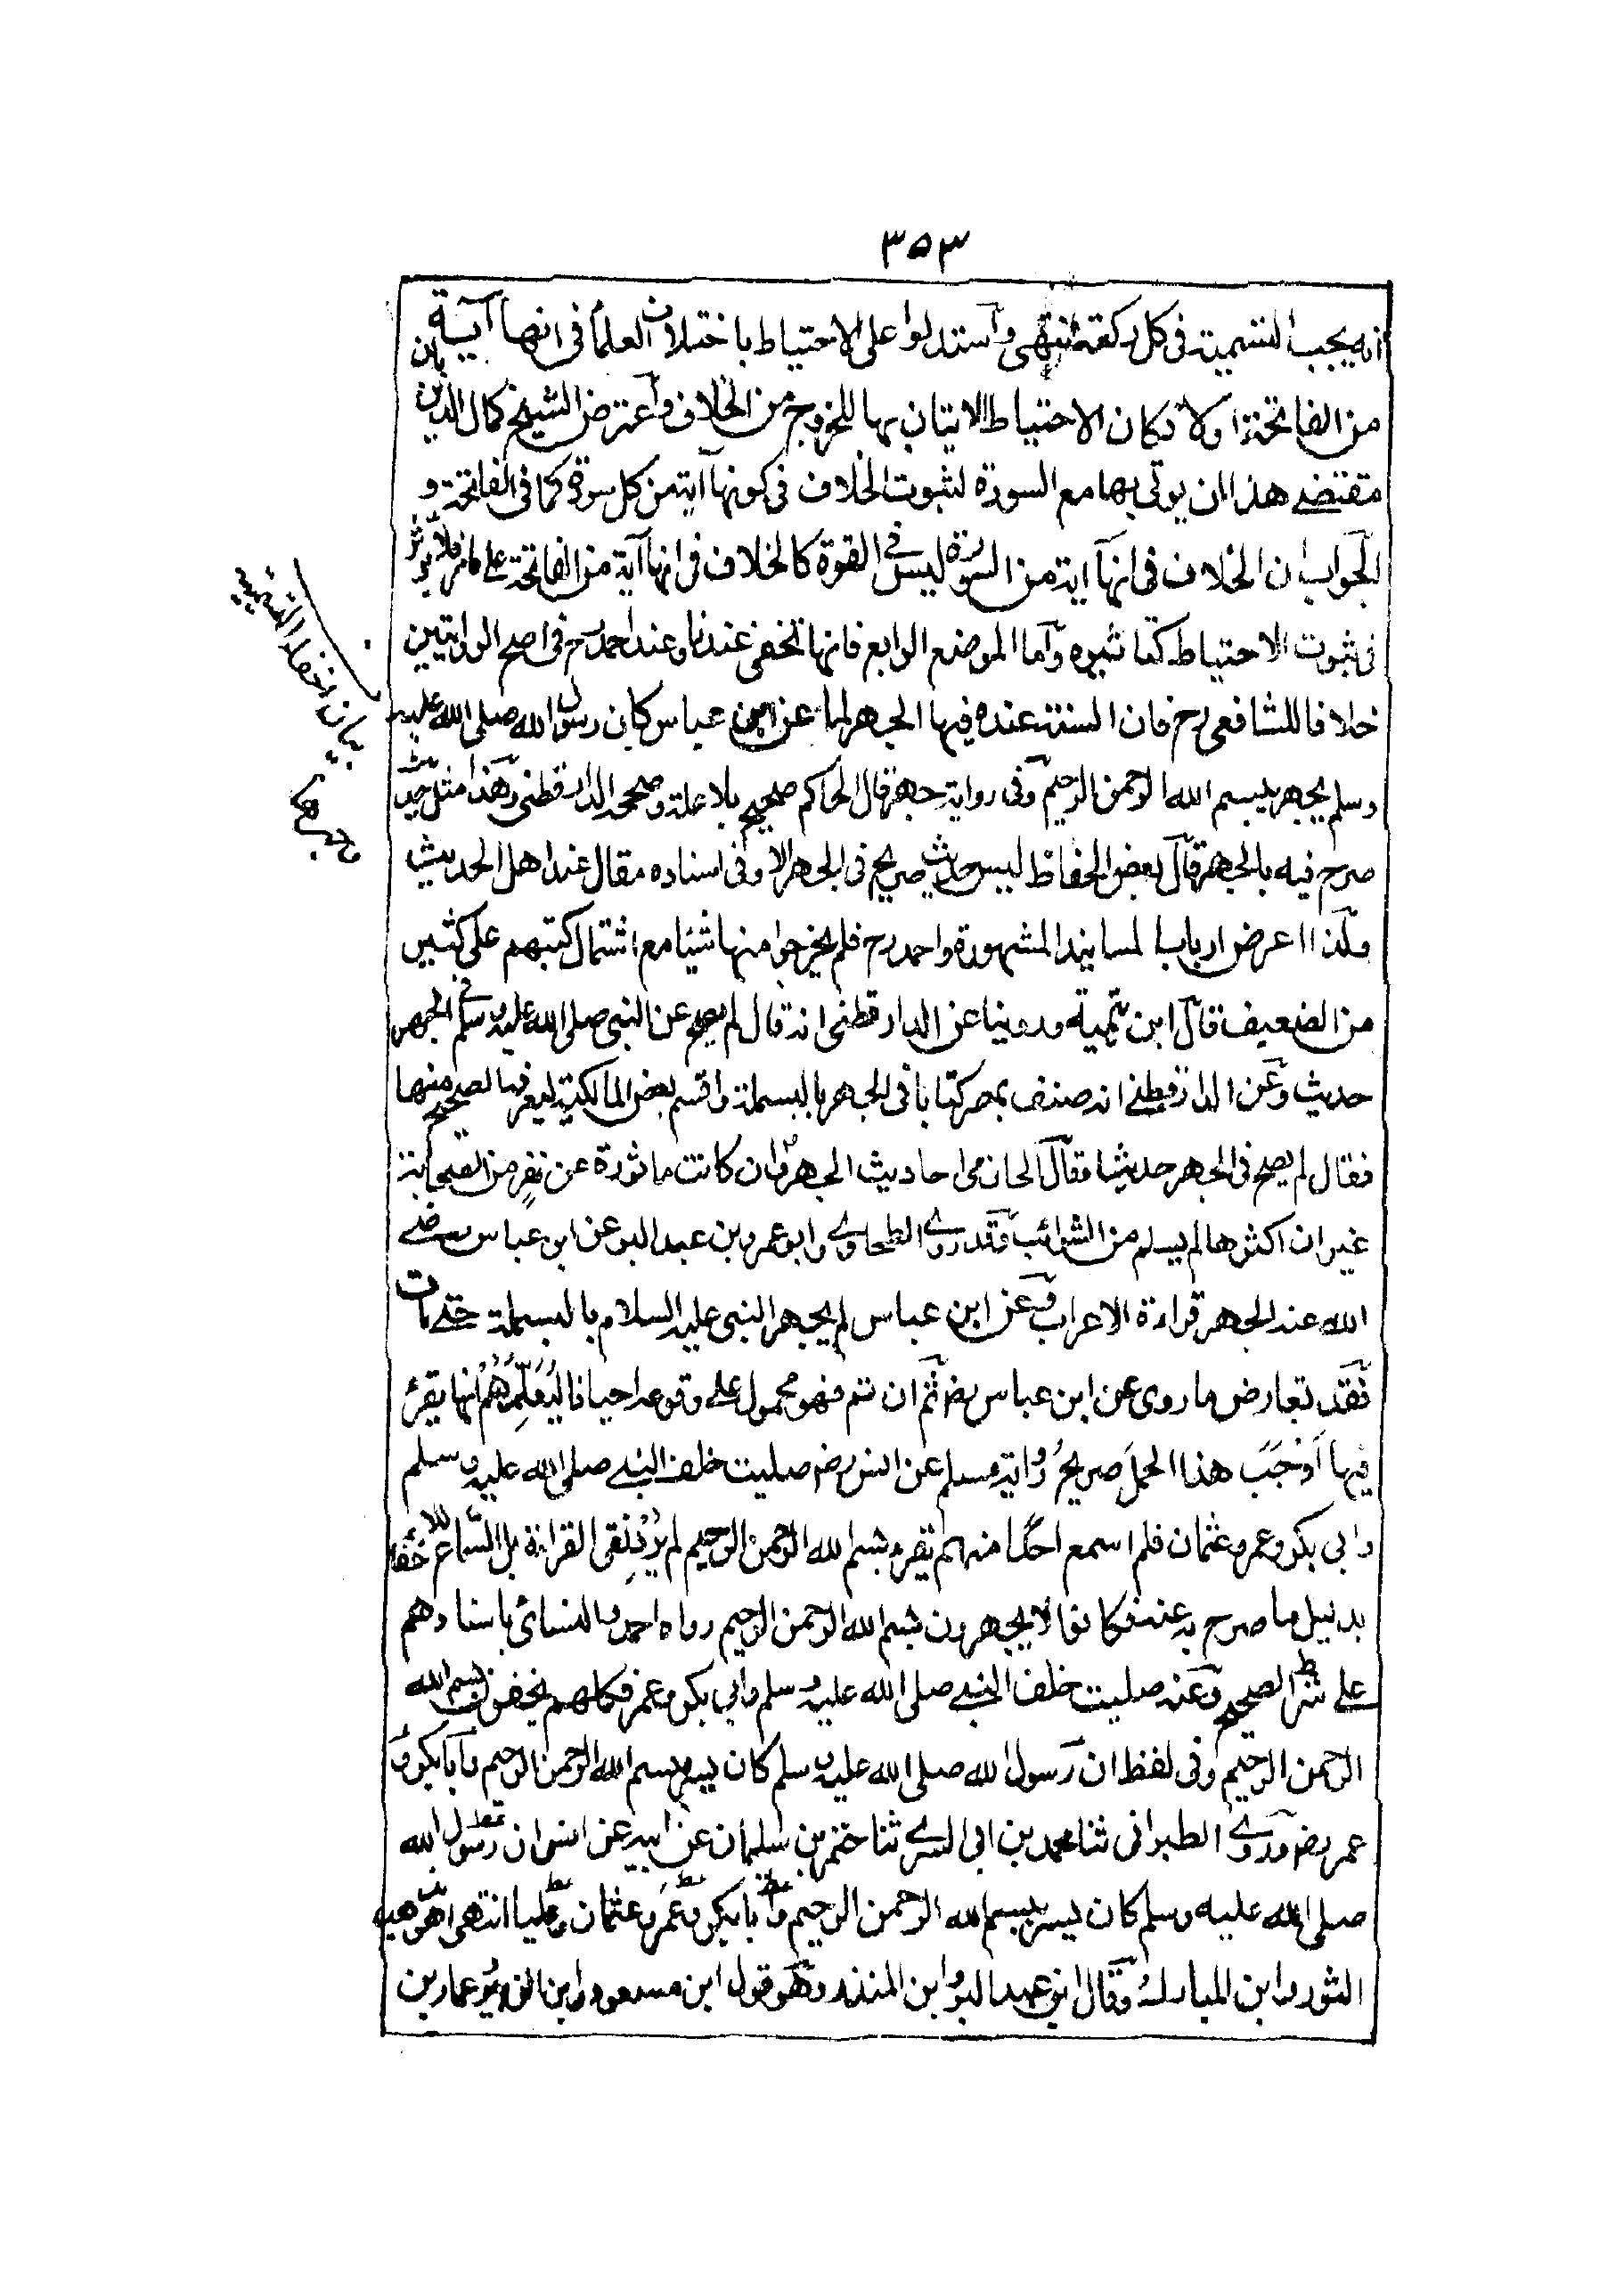 ٣٥٣
انه يجب التسمية فى كل ركعة انتهى واستدلوا على الاحتياط باختلاف العلماً فى انها آيية
من الفاتحة اولا فكان الاحتياط الاتيان بها للخروج من الخلاف وآعترض الشيخ كمال الدين بان
مقتضے هذا ان يوتى بها مع السورة لثبوت الخلاف فى كونها آية من كل سورة كما فى الفاتحة و
الجواب ان الخلاف فى انها آية من السورة ليس فے القوة كالخلاف فى انها آية من الفاتحة على ما مر فلا يوثر
فى ثبوت الاحتياط كتاثيره وآما الموضع الرابع فانها تخفى عندنا وعند احمد رح فى اصح الروايتين
خلافا للشافعى رح فان السنة عنده فيها الجهر لما عن ابن عباس كان رسول الله صلى الله عليه
وسلم يجهر ببسم الله الرحمن الرحيم وفى رواية جهر قال الحاكم صحيح بلا علة وصححه الدارقطنى وهذا امثل حديث
صرح فيه بالجهر قال بعض الحفاظ ليس حديث صريح فى الجهر الا وفى اسناده مقال عند اهل الحديث
ولذا اعرض ارباب المسانيد المشهورة واحمد رح فلم يخرجوا منها شيئا مع اشتمال كتبهم على كثير
من الضعيف قال ابن تيمية وروينا عن الدارقطنى انه قال لم يصح عن النبى صلى الله عليه وسلم فى الجهر
حديث وعن الدارقطنے انه صنف بمصر كتابا فى الجهر بالبسملة واقسم بعض المالكية ليعرف الصحيح منها
فقال لم يصح فى الجهر حديث وقال الحازمى احاديث الجهر وان كانت ماثورة عن نفر من الصحابة
غير ان اكثرها لم يسلم من الشوائب وقد روے الطحاوے وابو عمرو بن عبد البر عن ابن عباس رضے
الله عند الجهر قراءة الاعراب وعن ابن عباس لم يجهر النبى عليه السلام بالبسملة حتے مات
فقد تعارض ما روى عن ابن عباس رض ثم ان تم فهو محمول علے وقوعه احيانا ليُعلِّمَهُم انها يقرأ
فيها اَوْجَبَ هذا الحمل صريحُ رواية مسلم عن انس رض صليت خلف النبے صلى الله عليه وسلم
وابى بكر وعمر وعثمان فلم اسمع احدا منهم يقرء بسم الله الرحمن الرحيم لم يُرِدْ نفى القراءة بل السماع للاخفاء
بدليل ما صرح به عنه فكانوا لا يجهرون بسم الله الرحمن الرحيم رواه احمد والنسائى باسنادهم
علے شرط الصحيح وعنه صليت خلف النبے صلى الله عليه وسلم وابى بكر وعمر فكلهم يخفون بسم الله
الرحمن الرحيم وفى لفظ ان رسول الله صلى الله عليه وسلم كان يسر ببسم الله الرحمن الرحيم وآبا بكر و
عمر رض وروے الطبرانى ثنا محمد بن ابى السرے ثنا معتمر بن سليمان عن ابيه عن انس ان رسول الله
صلى الله عليه وسلم كان يسر ببسم الله الرحمن الرحيم وابا بكر وعمر وعثمان وعليا انتهى وهو مذهب
الثورى وابن المبارك وقال ابن عبد البر وابن المنذر وهو قول ابن مسعود وابن الزبير وعمار بن
بيان اخفاء التسمية
وجهرها